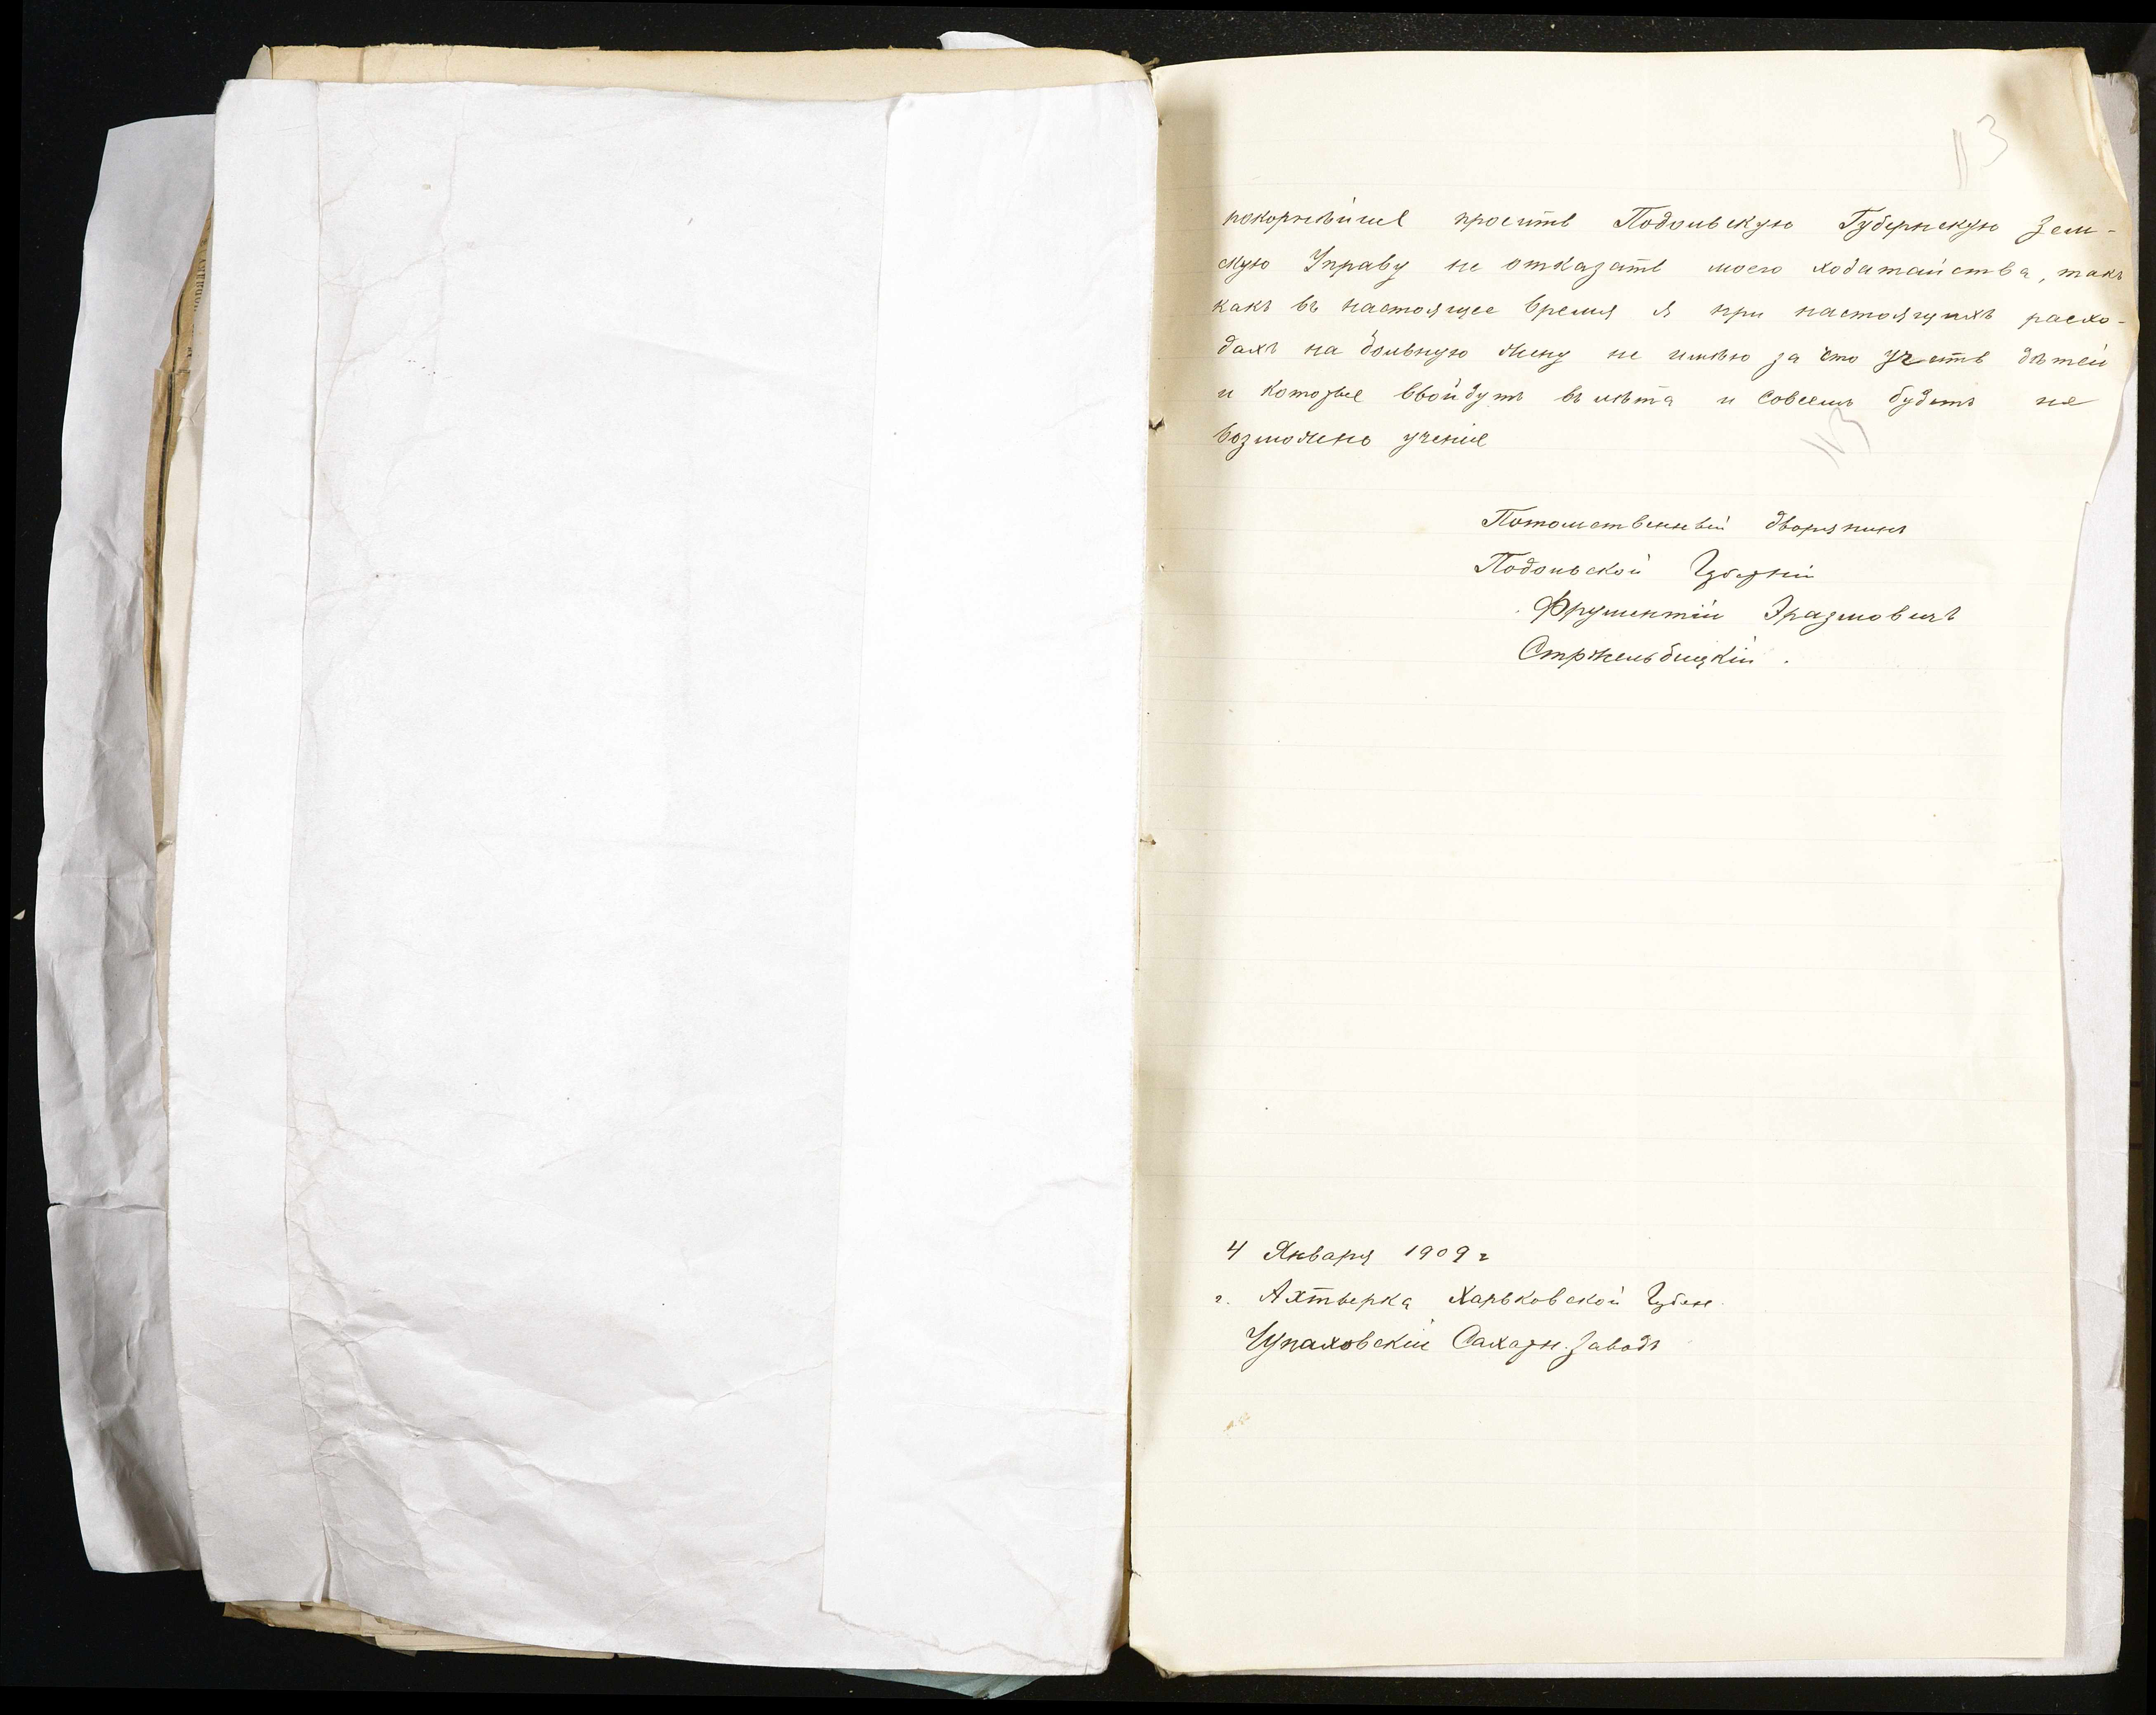 113
покорнѣйше просить Подольскую Губернскую Зем-
скую Управу не отказать моего ходатайства, такъ
какъ въ настоящее время я при настоящихъ расхо-
дахъ на больную жену не имѣю за что учить дѣтей
и которые ввойдутъ въ лѣта и совсемъ будетъ не
возможно ученіе
113
Потомственный дворянинъ
Подольской Губерніи
Фрументій Эразмовичъ
Стржельбицкій.
4 Января 1909 г
г. Ахтырка Харьковской Губен.
Чупаховскій Сахарн. Заводъ